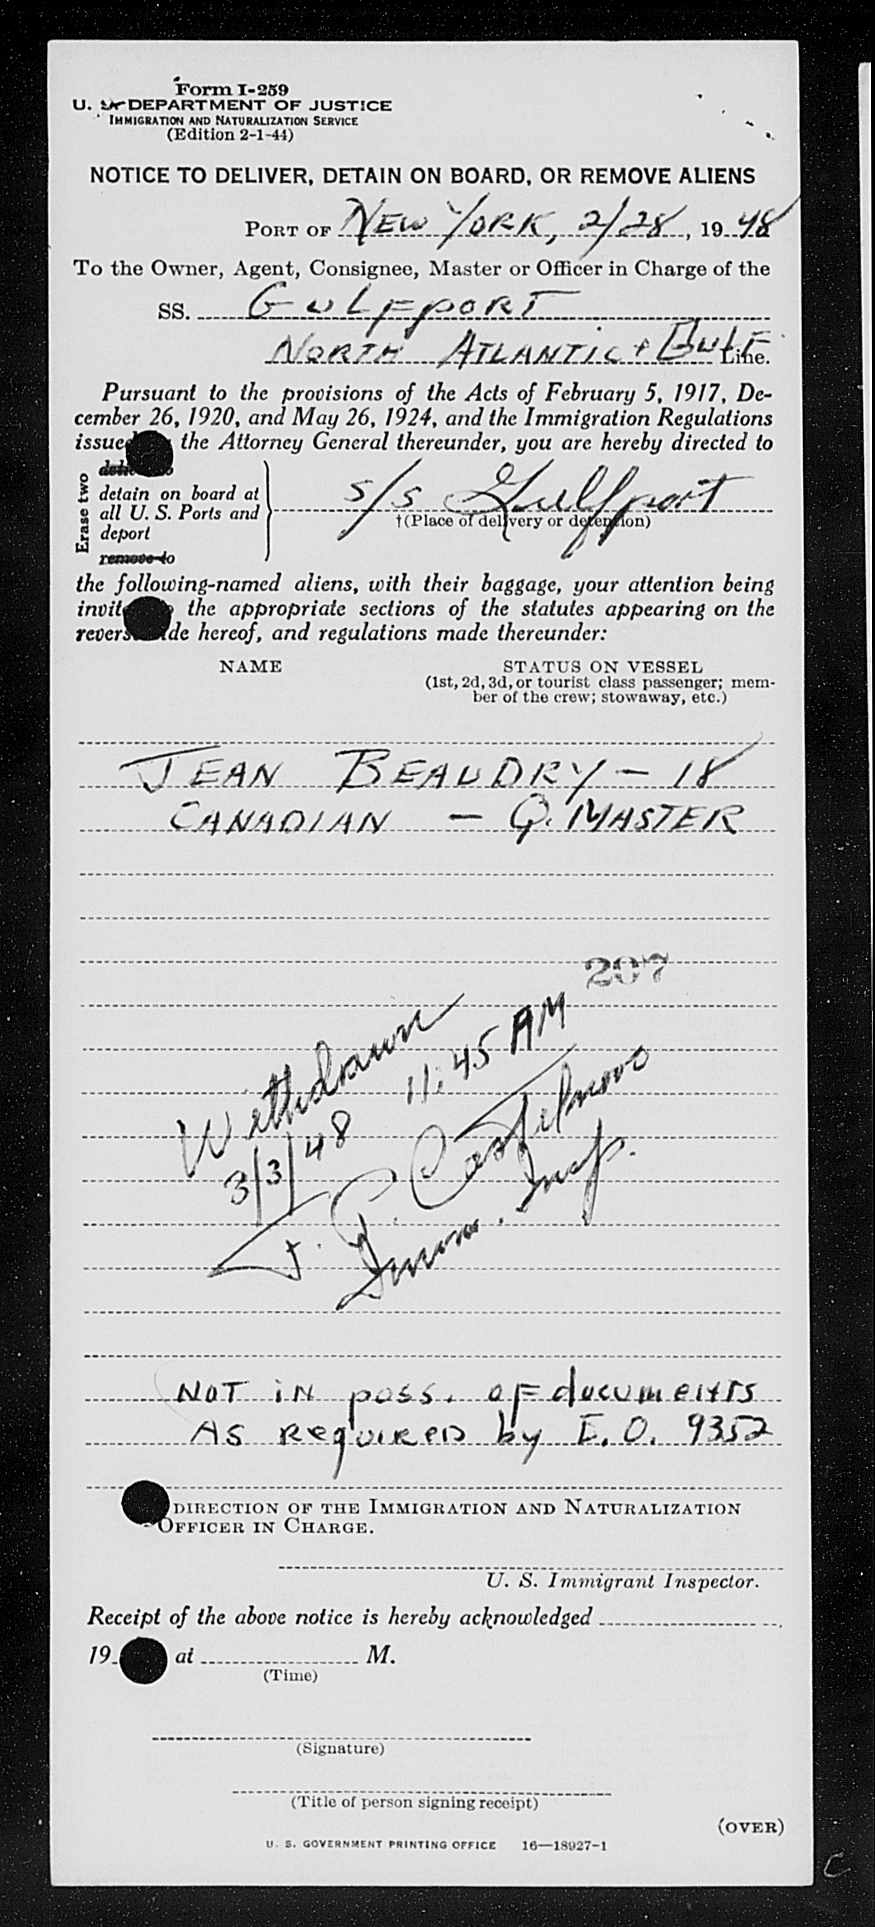 Form I-259
U. S. DEPARTMENT OF JUSTICE
IMMIGRATION AND NATURALIZATION SERVICE
(Edition 2-1-44)
NOTICE TO DELIVER, DETAIN ON BOARD, OR REMOVE ALIENS
PORT OF NEW YORK, 2/28, 1948
To the Owner, Agent, Consignee, Master or Officer in Charge of the
SS. GULFPORT
NORTH ATLANTIC + GULF Line.
Pursuant to the provisions of the Acts of February 5, 1917, De-
cember 26, 1920, and May 26, 1924, and the Immigration Regulations
issued the Attorney General thereunder, you are hereby directed to
Erase two
detain on board at
all U. S. Ports and
deport
remove to
s/s Gulfport
†(Place of delivery or detention)
the following-named aliens, with their baggage, your attention being
invit the appropriate sections of the statutes appearing on the
revers de hereof, and regulations made thereunder:
NAME STATUS ON VESSEL
(1st, 2d, 3d, or tourist class passenger; mem-
ber of the crew; stowaway, etc.)
JEAN BEAUDRY - 18
CANADIAN - Q. MASTER
207
Withdrawn
3/3/48 11:45 AM
F. P. Castelnovo
Imm. Insp.
NOT IN poss. OF documents
AS REQUIRED by E.O. 9352
DIRECTION OF THE IMMIGRATION AND NATURALIZATION
OFFICER IN CHARGE.
U. S. Immigrant Inspector.
Receipt of the above notice is hereby acknowledged
19 at M.
(Time)
(Signature)
(Title of person signing receipt)
(OVER)
U. S. GOVERNMENT PRINTING OFFICE 16—18927-1
C